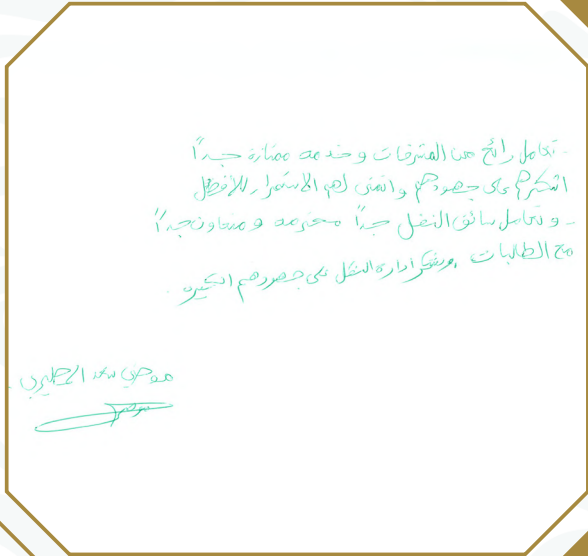 - تعامل رائع من المشرفات وخدمه ممتازة جداً
اشكرهم على جهودهم واتمنى لهم الاستمرار للأفضل
- وتعامل سائق النقل جداً محترمه ومتعاون جداً
مع الطالبات ونشكر ادارة النقل على جهودهم الكبيره .
موضي سعد المطيري .